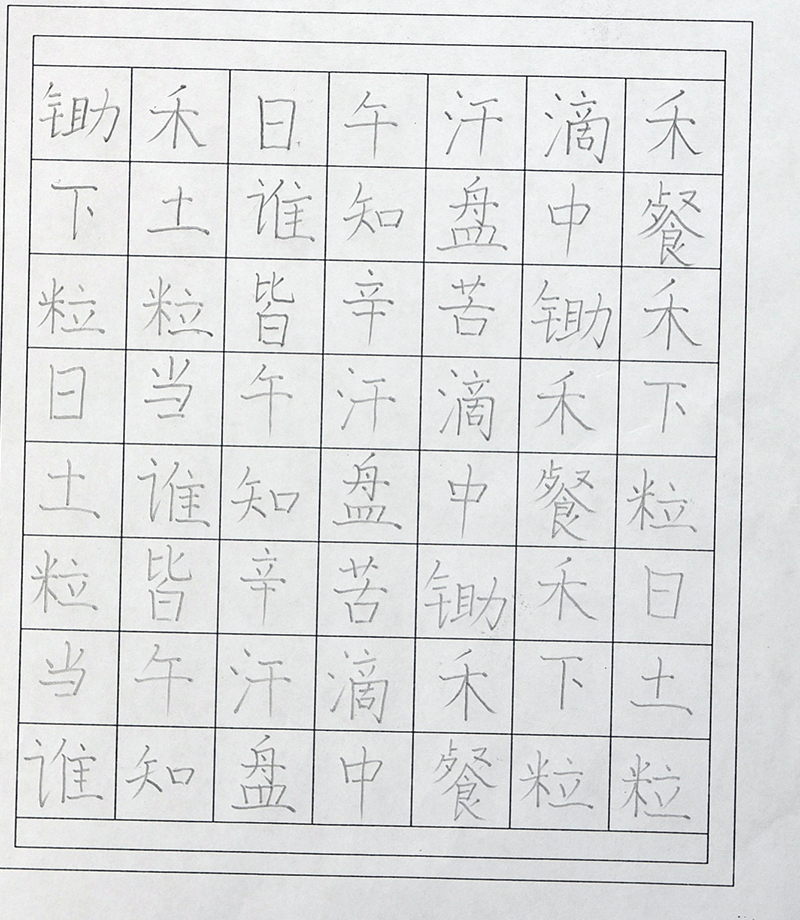 锄禾日午汗滴禾
下土谁知盘中餐
粒粒皆辛苦锄禾
日当午汗滴禾下
土谁知盘中餐粒
粒皆辛苦锄禾日
当午汗滴禾下土
谁知盘中餐粒粒